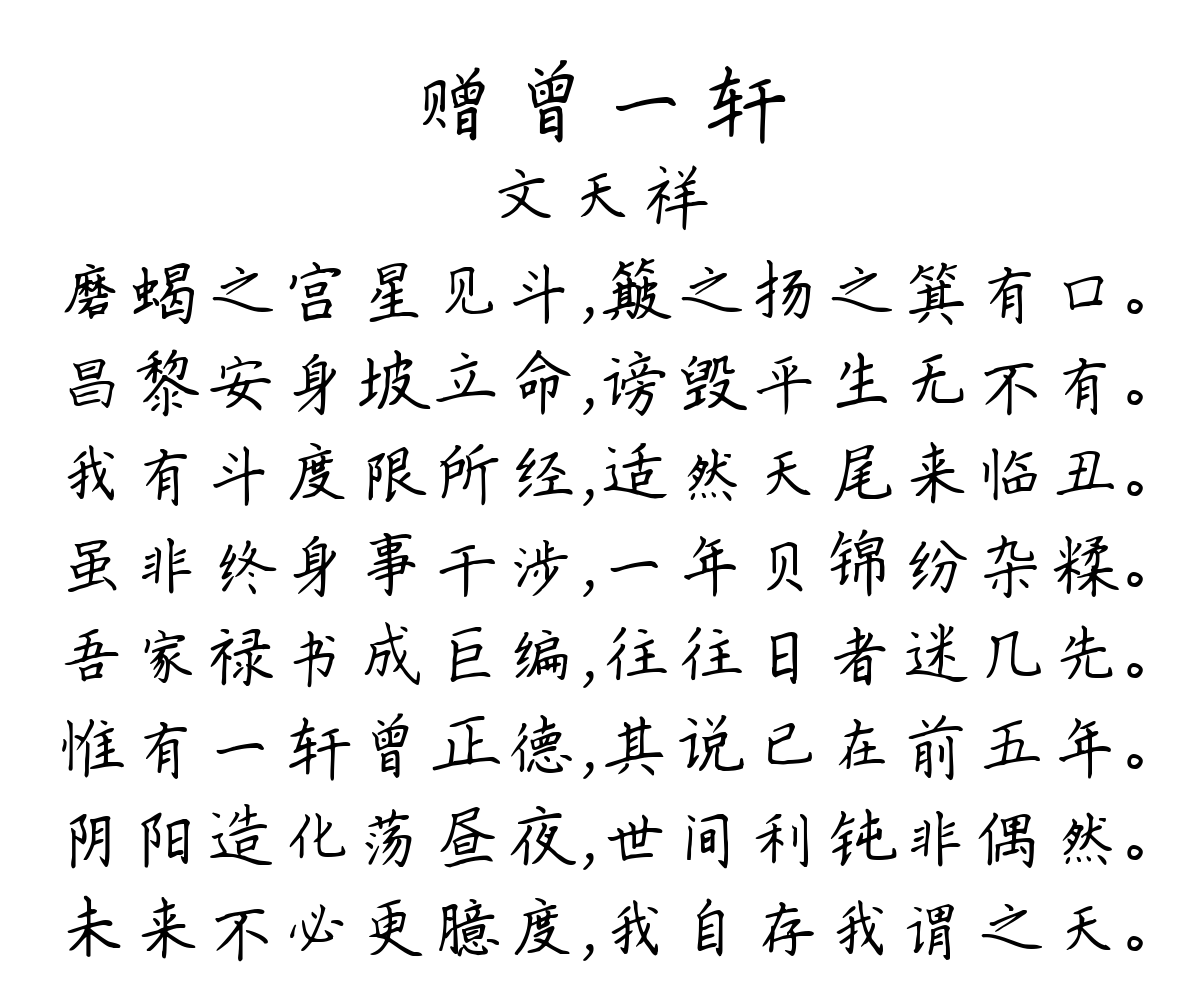 赠曾一轩
文天祥
磨蝎之宫星见斗,簸之扬之箕有口。
昌黎安身坡立命,谤毁平生无不有。
我有斗度限所经,适然天尾来临丑。
虽非终身事干涉,一年贝锦纷杂糅。
吾家禄书成巨编,往往日者迷几先。
惟有一轩曾正德,其说已在前五年。
阴阳造化荡昼夜,世间利钝非偶然。
未来不必更臆度,我自存我谓之天。